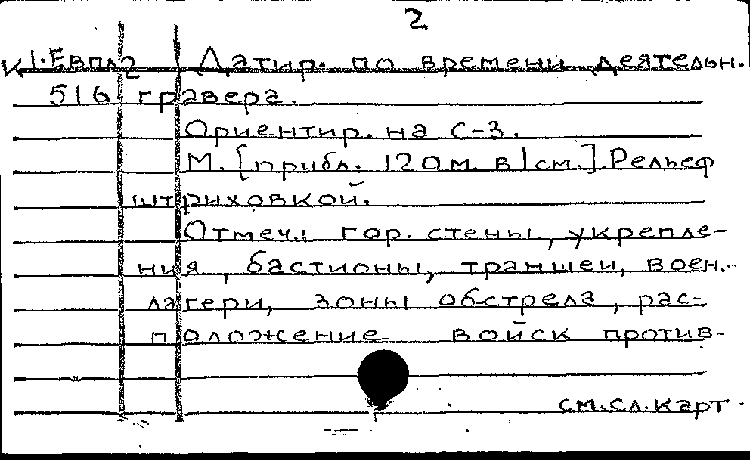 2
К 1-Евпл2 Датир. по времени деятельн.
516 гравера.
Ориентир. на С-З.
М. [прибл. 120м. в 1см.] Рельеф
штриховкой.
Отмеч. гор. стены, укрепле-
ния, бастионы, траншеи, воен.
лагери, зоны обстрела, рас-
положение войск против-
см. сл. карт.